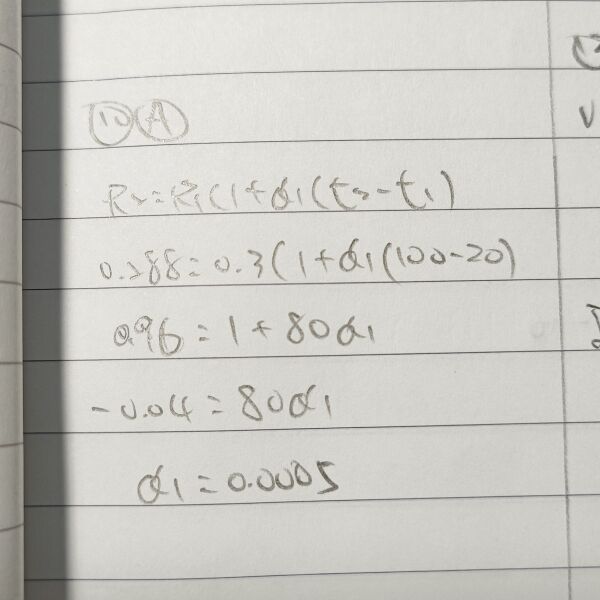 ⑩ Ⓐ
R₂=R₁(1+α₁(t₂-t₁)
0.288=0.3(1+α₁(100-20)
0.96=1+80α₁
-0.04=80α₁
α₁=0.0005